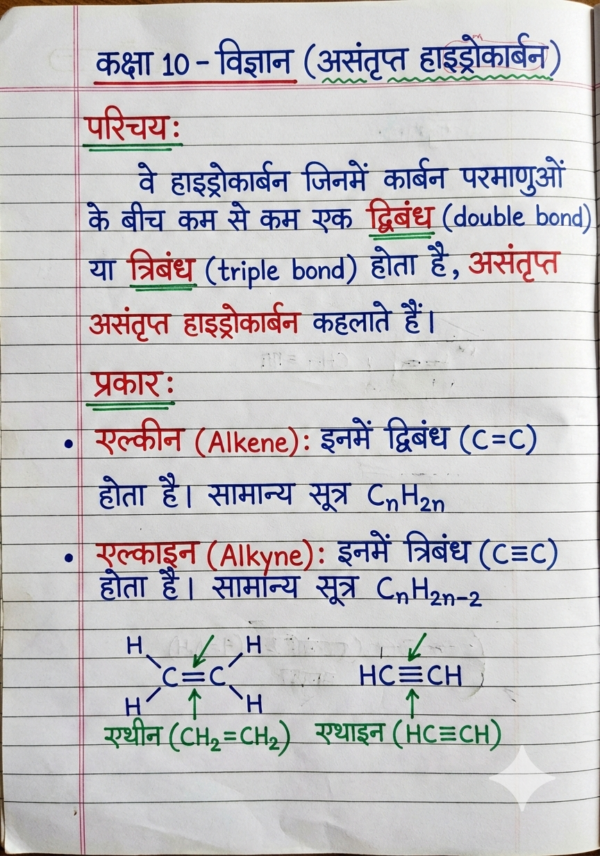 कक्षा 10 - विज्ञान (असंतृप्त हाइड्रोकार्बन)
परिचय:
वे हाइड्रोकार्बन जिनमें कार्बन परमाणुओं
के बीच कम से कम एक द्विबंध (double bond)
या त्रिबंध (triple bond) होता है, असंतृप्त
असंतृप्त हाइड्रोकार्बन कहलाते हैं।
प्रकार:
• एल्कीन (Alkene): इनमें द्विबंध (C=C)
होता है। सामान्य सूत्र CₙH₂ₙ
• एल्काइन (Alkyne): इनमें त्रिबंध (C≡C)
होता है। सामान्य सूत्र CₙH₂ₙ₋₂
H H
C=C HC≡CH
H H
एथीन (CH₂=CH₂) एथाइन (HC≡CH)